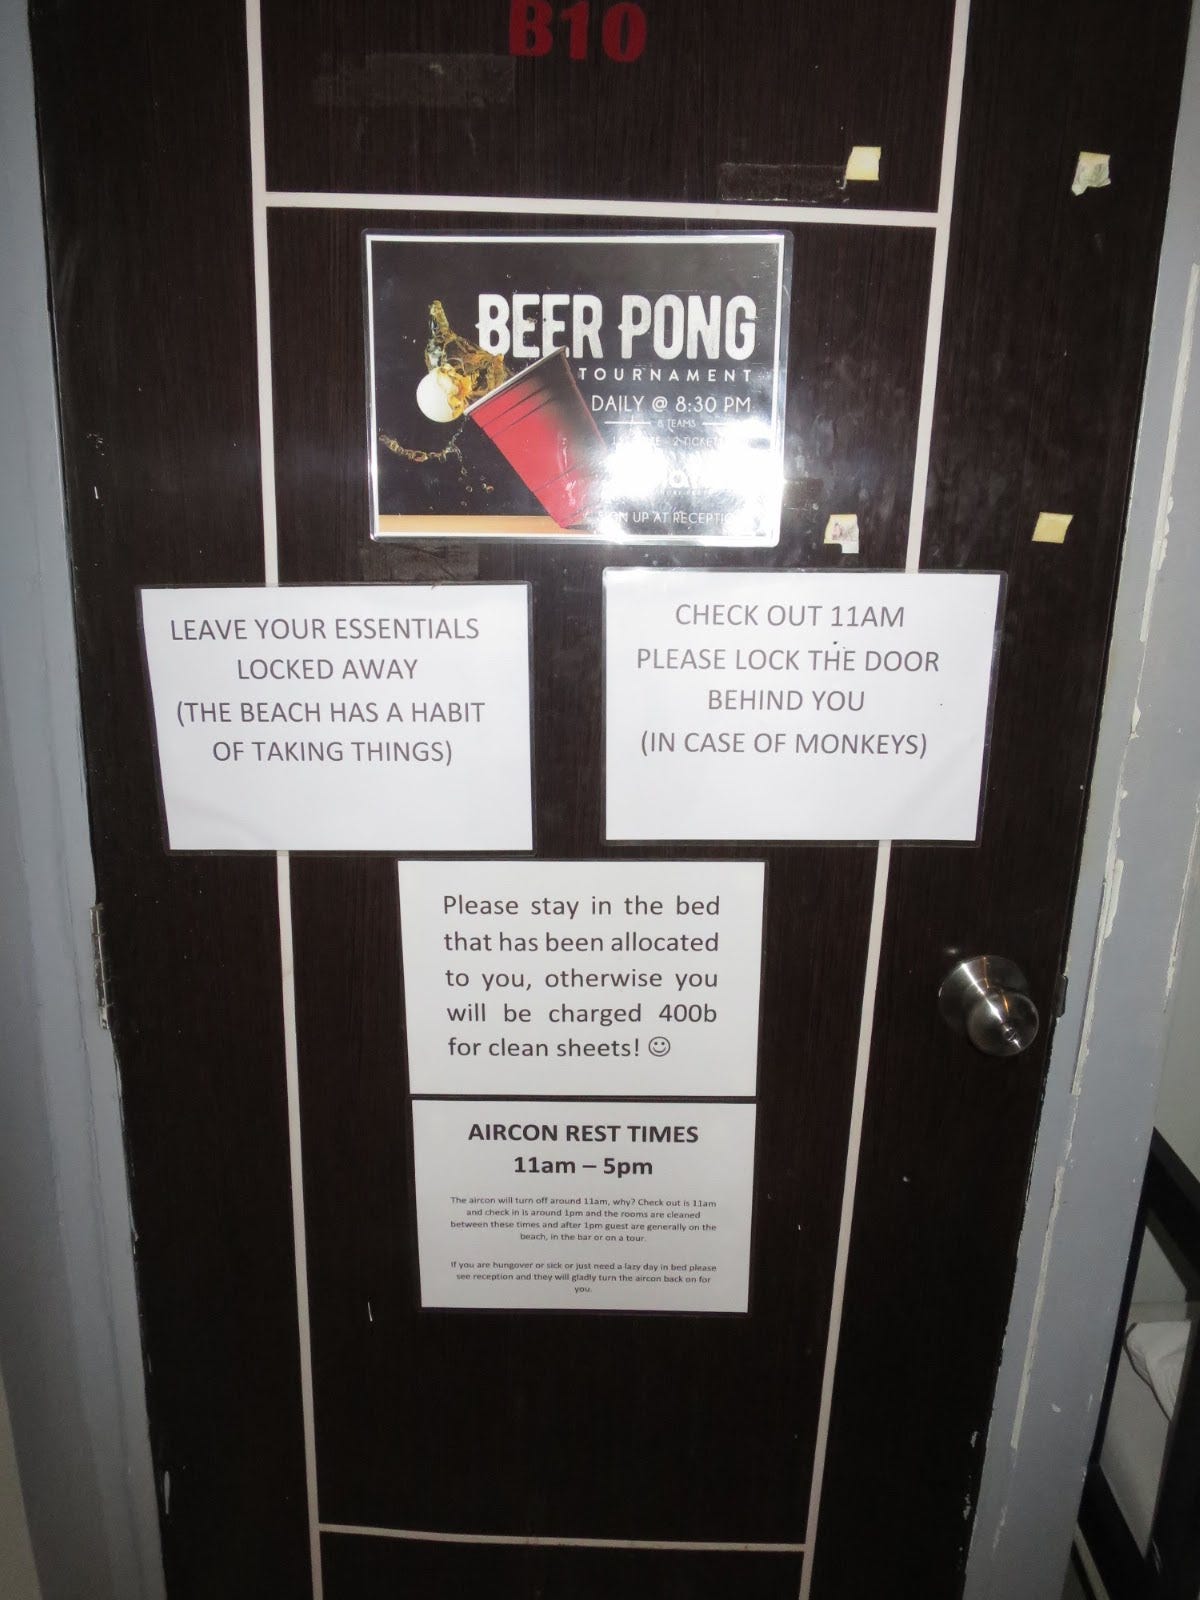 B10
BEER PONG
TOURNAMENT
DAILY @ 8:30 PM
8 TEAMS
2 TICKET
UP AT RECEPTIO
LEAVE YOUR ESSENTIALS
LOCKED AWAY
(THE BEACH HAS A HABIT
OF TAKING THINGS)
CHECK OUT 11AM
PLEASE LOCK THE DOOR
BEHIND YOU
(IN CASE OF MONKEYS)
Please stay in the bed
that has been allocated
to you, otherwise you
will be charged 400b
for clean sheets! ☺
AIRCON REST TIMES
11am – 5pm
The aircon will turn off around 11am, why? Check out is 11am
and check in is around 1pm and the rooms are cleaned
between these times and after 1pm guest are generally on the
beach, in the bar or on a tour.
If you are hungover or sick or just need a lazy day in bed please
see reception and they will gladly turn the aircon back on for
you.